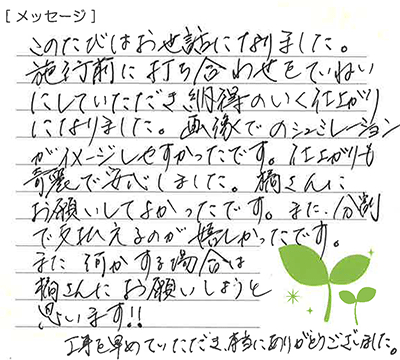 [メッセージ]
このたびはお世話になりました。
施行前に打ち合わせをていねい
にしていただき、納得のいく仕上がり
になりました。画像でのシュミレーション
がイメージしやすかったです。仕上がりも
奇麗で安心しました。橘さんに
お願いしてよかったです。また、分割
で支払えるのが嬉しかったです。
また何かする場合は
橘さんにお願いしようと
思います!!
工事を早めていただき、本当にありがとうございました。